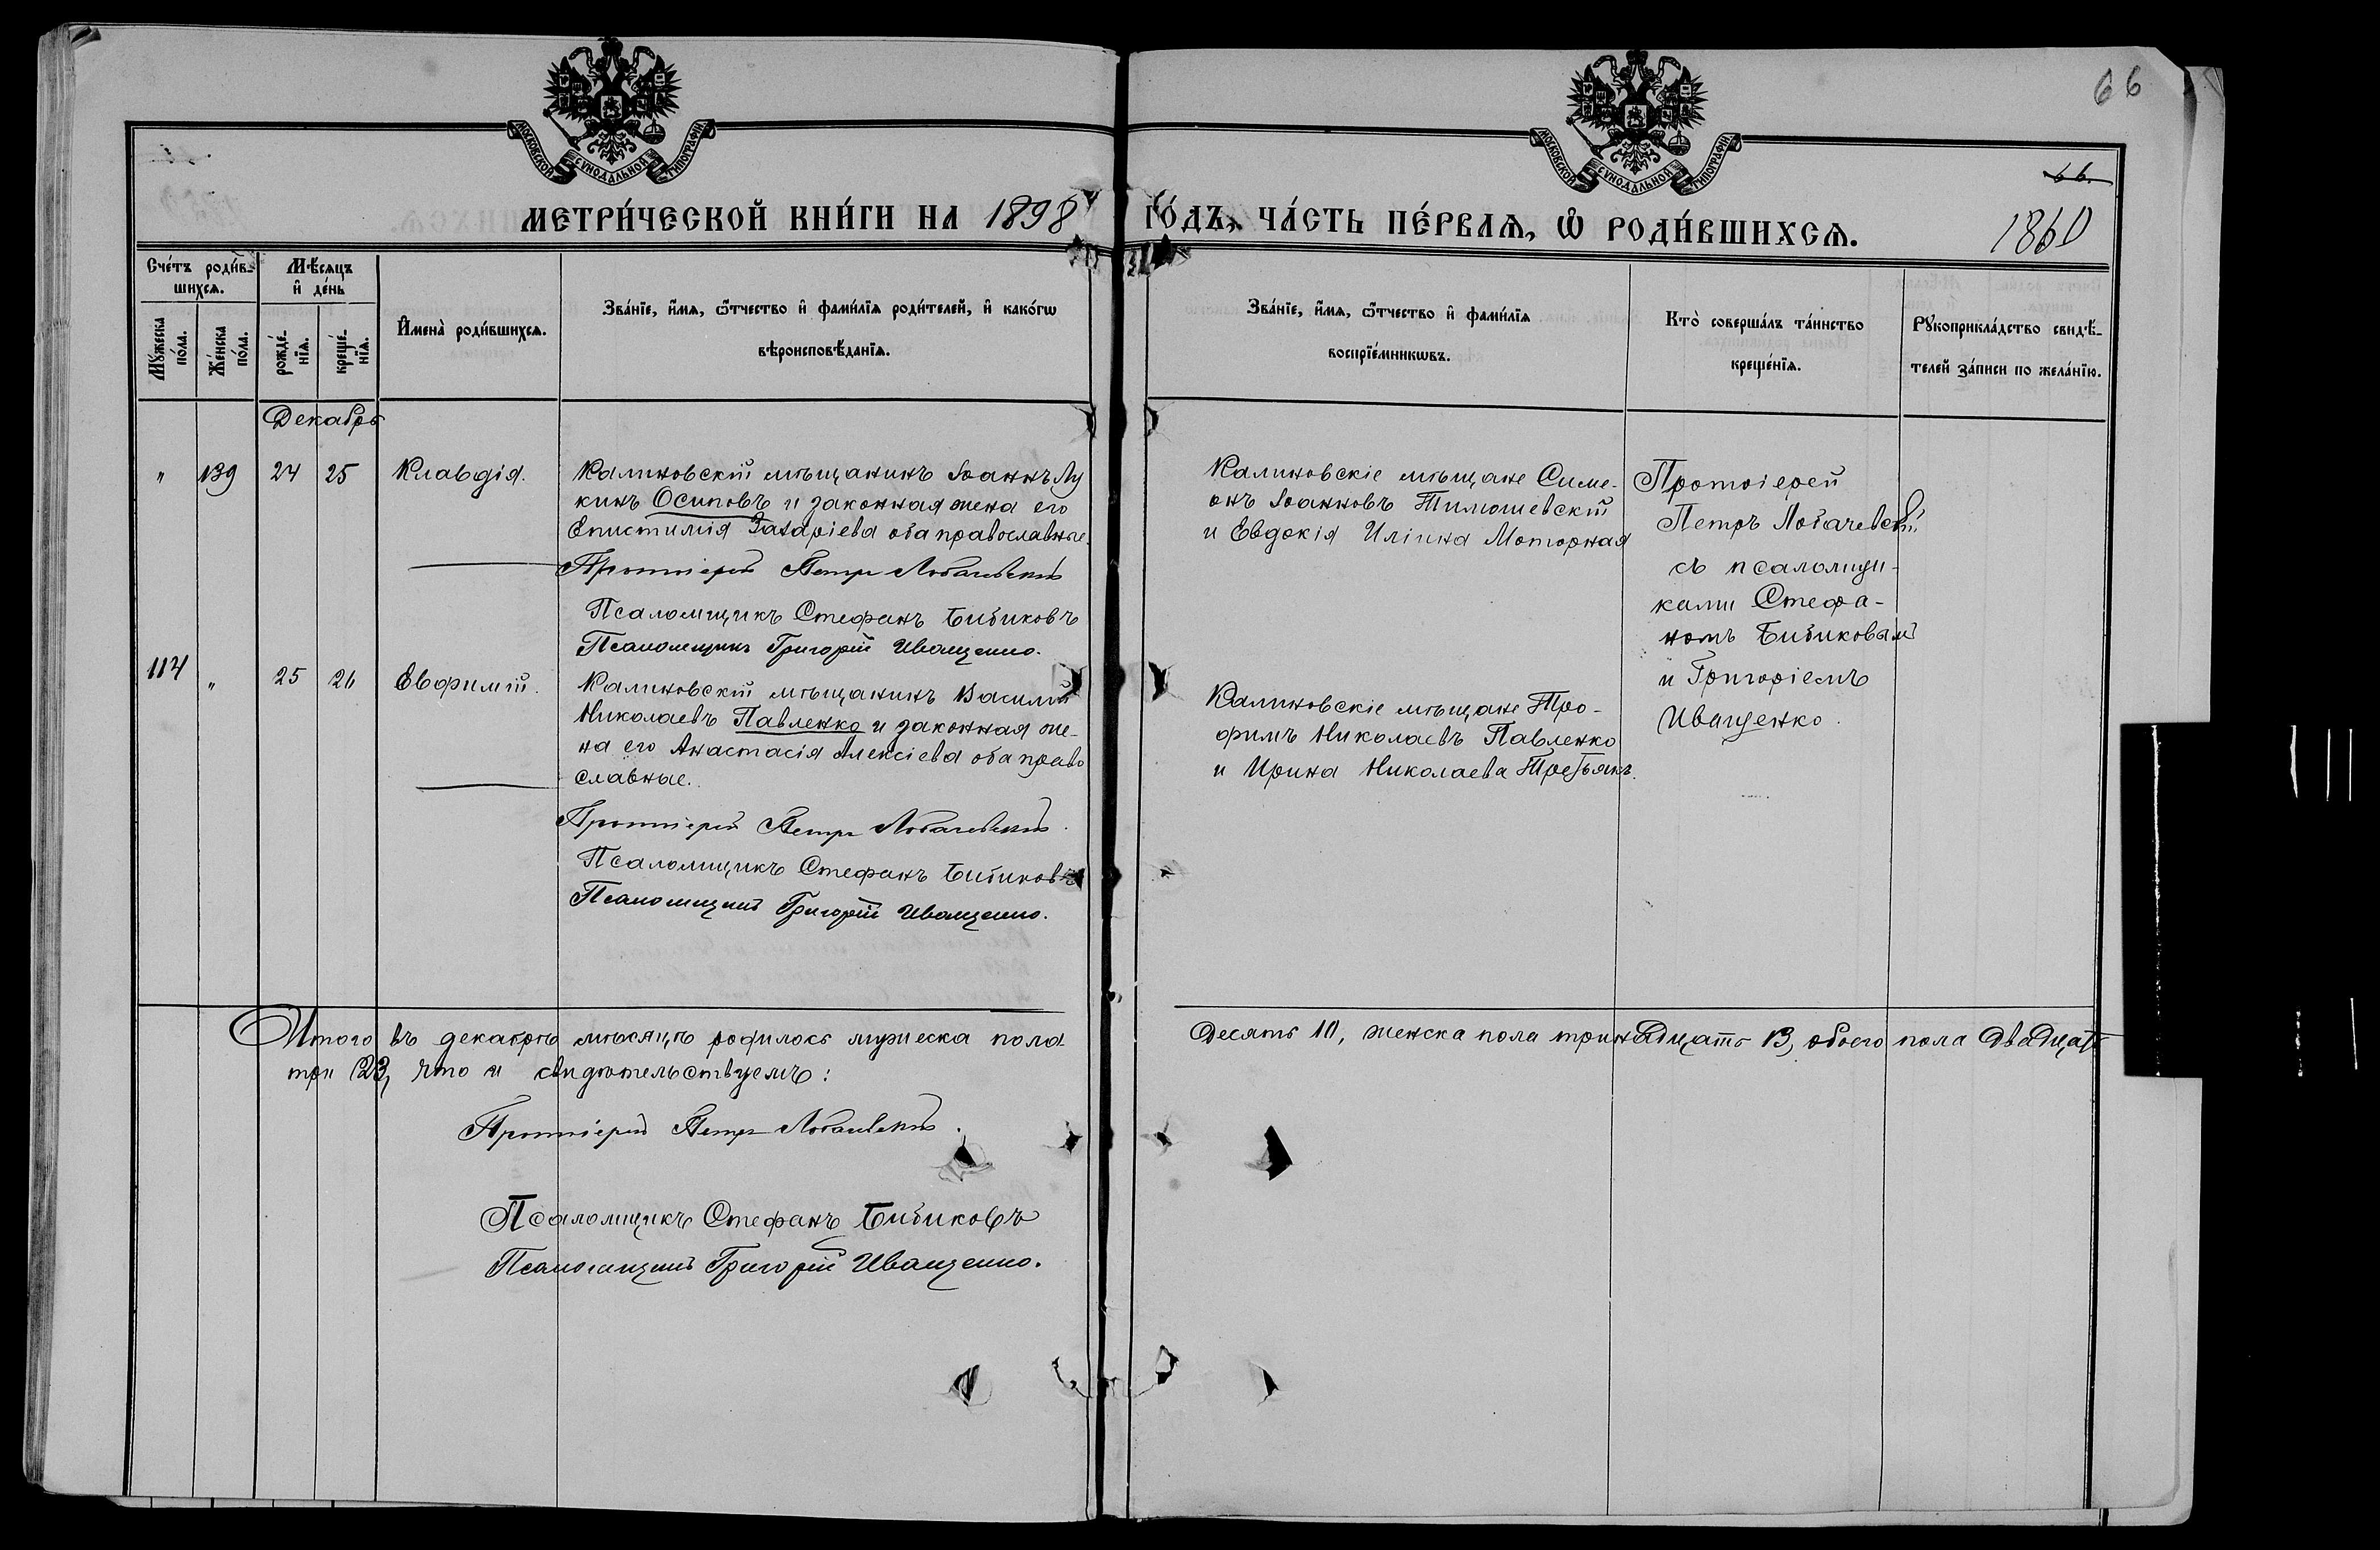 66
МОСКОВСКОЙ СѴНОДАЛЬНОЙ ТИПОГРАФІИ.
МОСКОВСКОЙ СѴНОДАЛЬНОЙ ТИПОГРАФІИ.
66.
МЕТРИ́ЧЕСКОЙ КНИ́ГИ НА 1898 ГО́ДЪ, ЧА́СТЬ ПЕ́РВАѦ, Ѡ҆ РОДИ́ВШИХСѦ.
1860
Сче́тъ роди́в-
шихсѧ.
Мꙋ́жеска по́ла.
Же́нска по́ла.
Мѣ́сѧцъ
и҆ де́нь
рожде́-нїѧ.
креще́-нїѧ.
И҆мена̀ роди́вшихсѧ.
Зва́нїе, и҆́мѧ, ѻ҆́тчество и҆ фами́лїѧ роди́телей, и҆ како́гѡ
вѣроисповѣ́данїѧ.
Зва́нїе, и҆́мѧ, ѻ҆́тчество и҆ фами́лїѧ
воспрїе́мникѡвъ.
Кто̀ соверша́лъ та́инство
креще́нїѧ.
Рꙋкоприкла́дство свидѣ́-
телей за́писи по жела́нїю.
Декабрь
" 139 24 25 Клавдія.
Калиновскій мѣщанинъ Іоаннъ Лу
кинъ Осиповъ и законная жена его
Епистимія Захаріева оба православные.
Протоіерей Петръ Лобачевскій
Псаломщикъ Стефанъ Бибиковъ
Псаломщикъ Григорій Иващенко.
Калиновскіе мѣщане Симе-
онъ Іоанновъ Тимошевскій
и Евдокія Иліина Моторная
Протоіерей
Петръ Лобачевскій
съ псаломщи-
ками Стефа-
номъ Бибиковым
и Григоріемъ
Иващенко.
114 " 25 26 Евфимій.
Калиновскій мѣщанинъ Василій
Николаевъ Павленко и законная же-
на его Анастасія Алексіева оба право
славные.
Протоіерей Петръ Лобачевскій.
Псаломщикъ Стефанъ Бибиковъ
Псаломщикъ Григорій Иващенко.
Калиновскіе мѣщане Тро-
фимъ Николаевъ Павленко
и Ирина Николаева Третьякъ.
Итого въ декабрѣ мѣсяцѣ родилось мужеска пола десять 10, женска пола тринадцать 13, обоего пола двадцать
три 23, что и свидѣтельствуемъ:
Протоіерей Петръ Лобачевскій.
Псаломщикъ Стефанъ Бибиковъ
Псаломщикъ Григорій Иващенко.